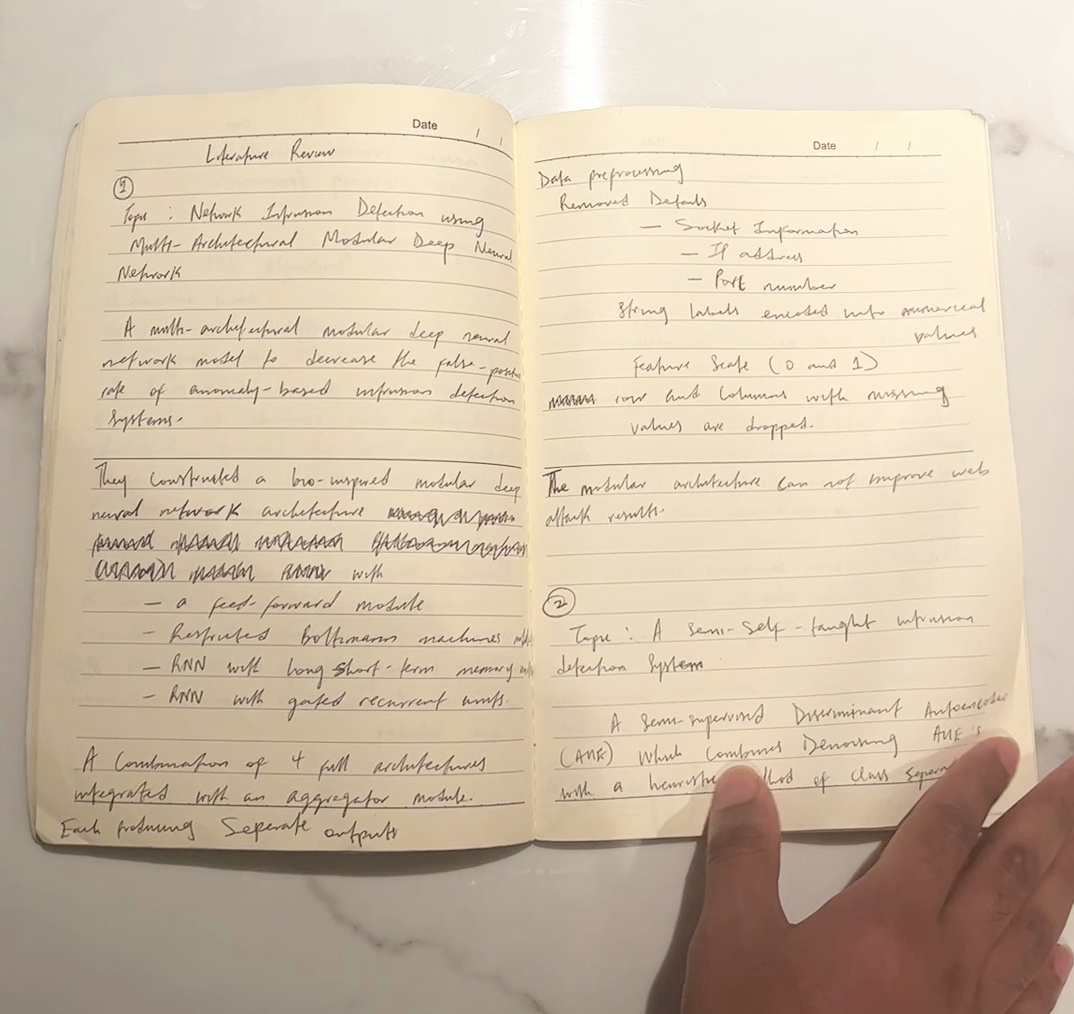 Date / /
Literature Review
1
Topic : Network Intrusion Detection using
Multi-Architectural Modular Deep Neural
Network
A multi-architectural modular deep neural
network model to decrease the false-positive
rate of anomaly-based intrusion detection
systems.
They constructed a bio-inspired modular deep
neural network architecture
with
- a feed-forward module
- Restricted Boltzmann machines
- RNN with long short-term memory
- RNN with gated recurrent units.
A Combination of 4 full architectures
integrated with an aggregator module.
Each producing Seperate outputs
Date / /
Data preprocessing
Removed Details
- Socket Information
- IP address
- Port number
String labels encoded into numerical
values
Feature Scale (0 and 1)
row and Columns with missing
values are dropped.
The modular architecture can not improve web
attack results.
2
Topic : A Semi-Self-taught intrusion
detection System
A Semi-supervised Discriminant Autoencoder
Which Combines Denoising
with a of Class